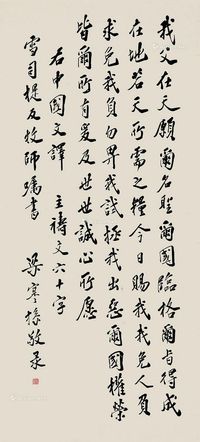 我父在天願爾名聖爾國臨格爾旨得成
在地若天所需之糧今日賜我我免人負
求免我負勿畀我試拯我出惡爾國權榮
皆爾所有爰及世世誠心所願
右中國文譯 主禱文六十字
雪司提反牧師囑書 梁寒操敬录